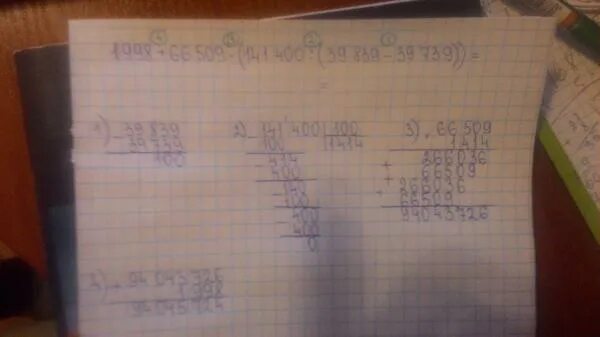 4 3 2 1
1998+66 509·(141 400:(39 839-39 739))=
=
1) 39 839
-39 739
100
2) 141'400 | 100
100 1414
- 414
400
- 140
100
- 400
400
0
3) · 66 509
1414
266036
+ 66509
+ 266036
+ 66509
94043726
4) + 94 043 726
1 998
94 045 724